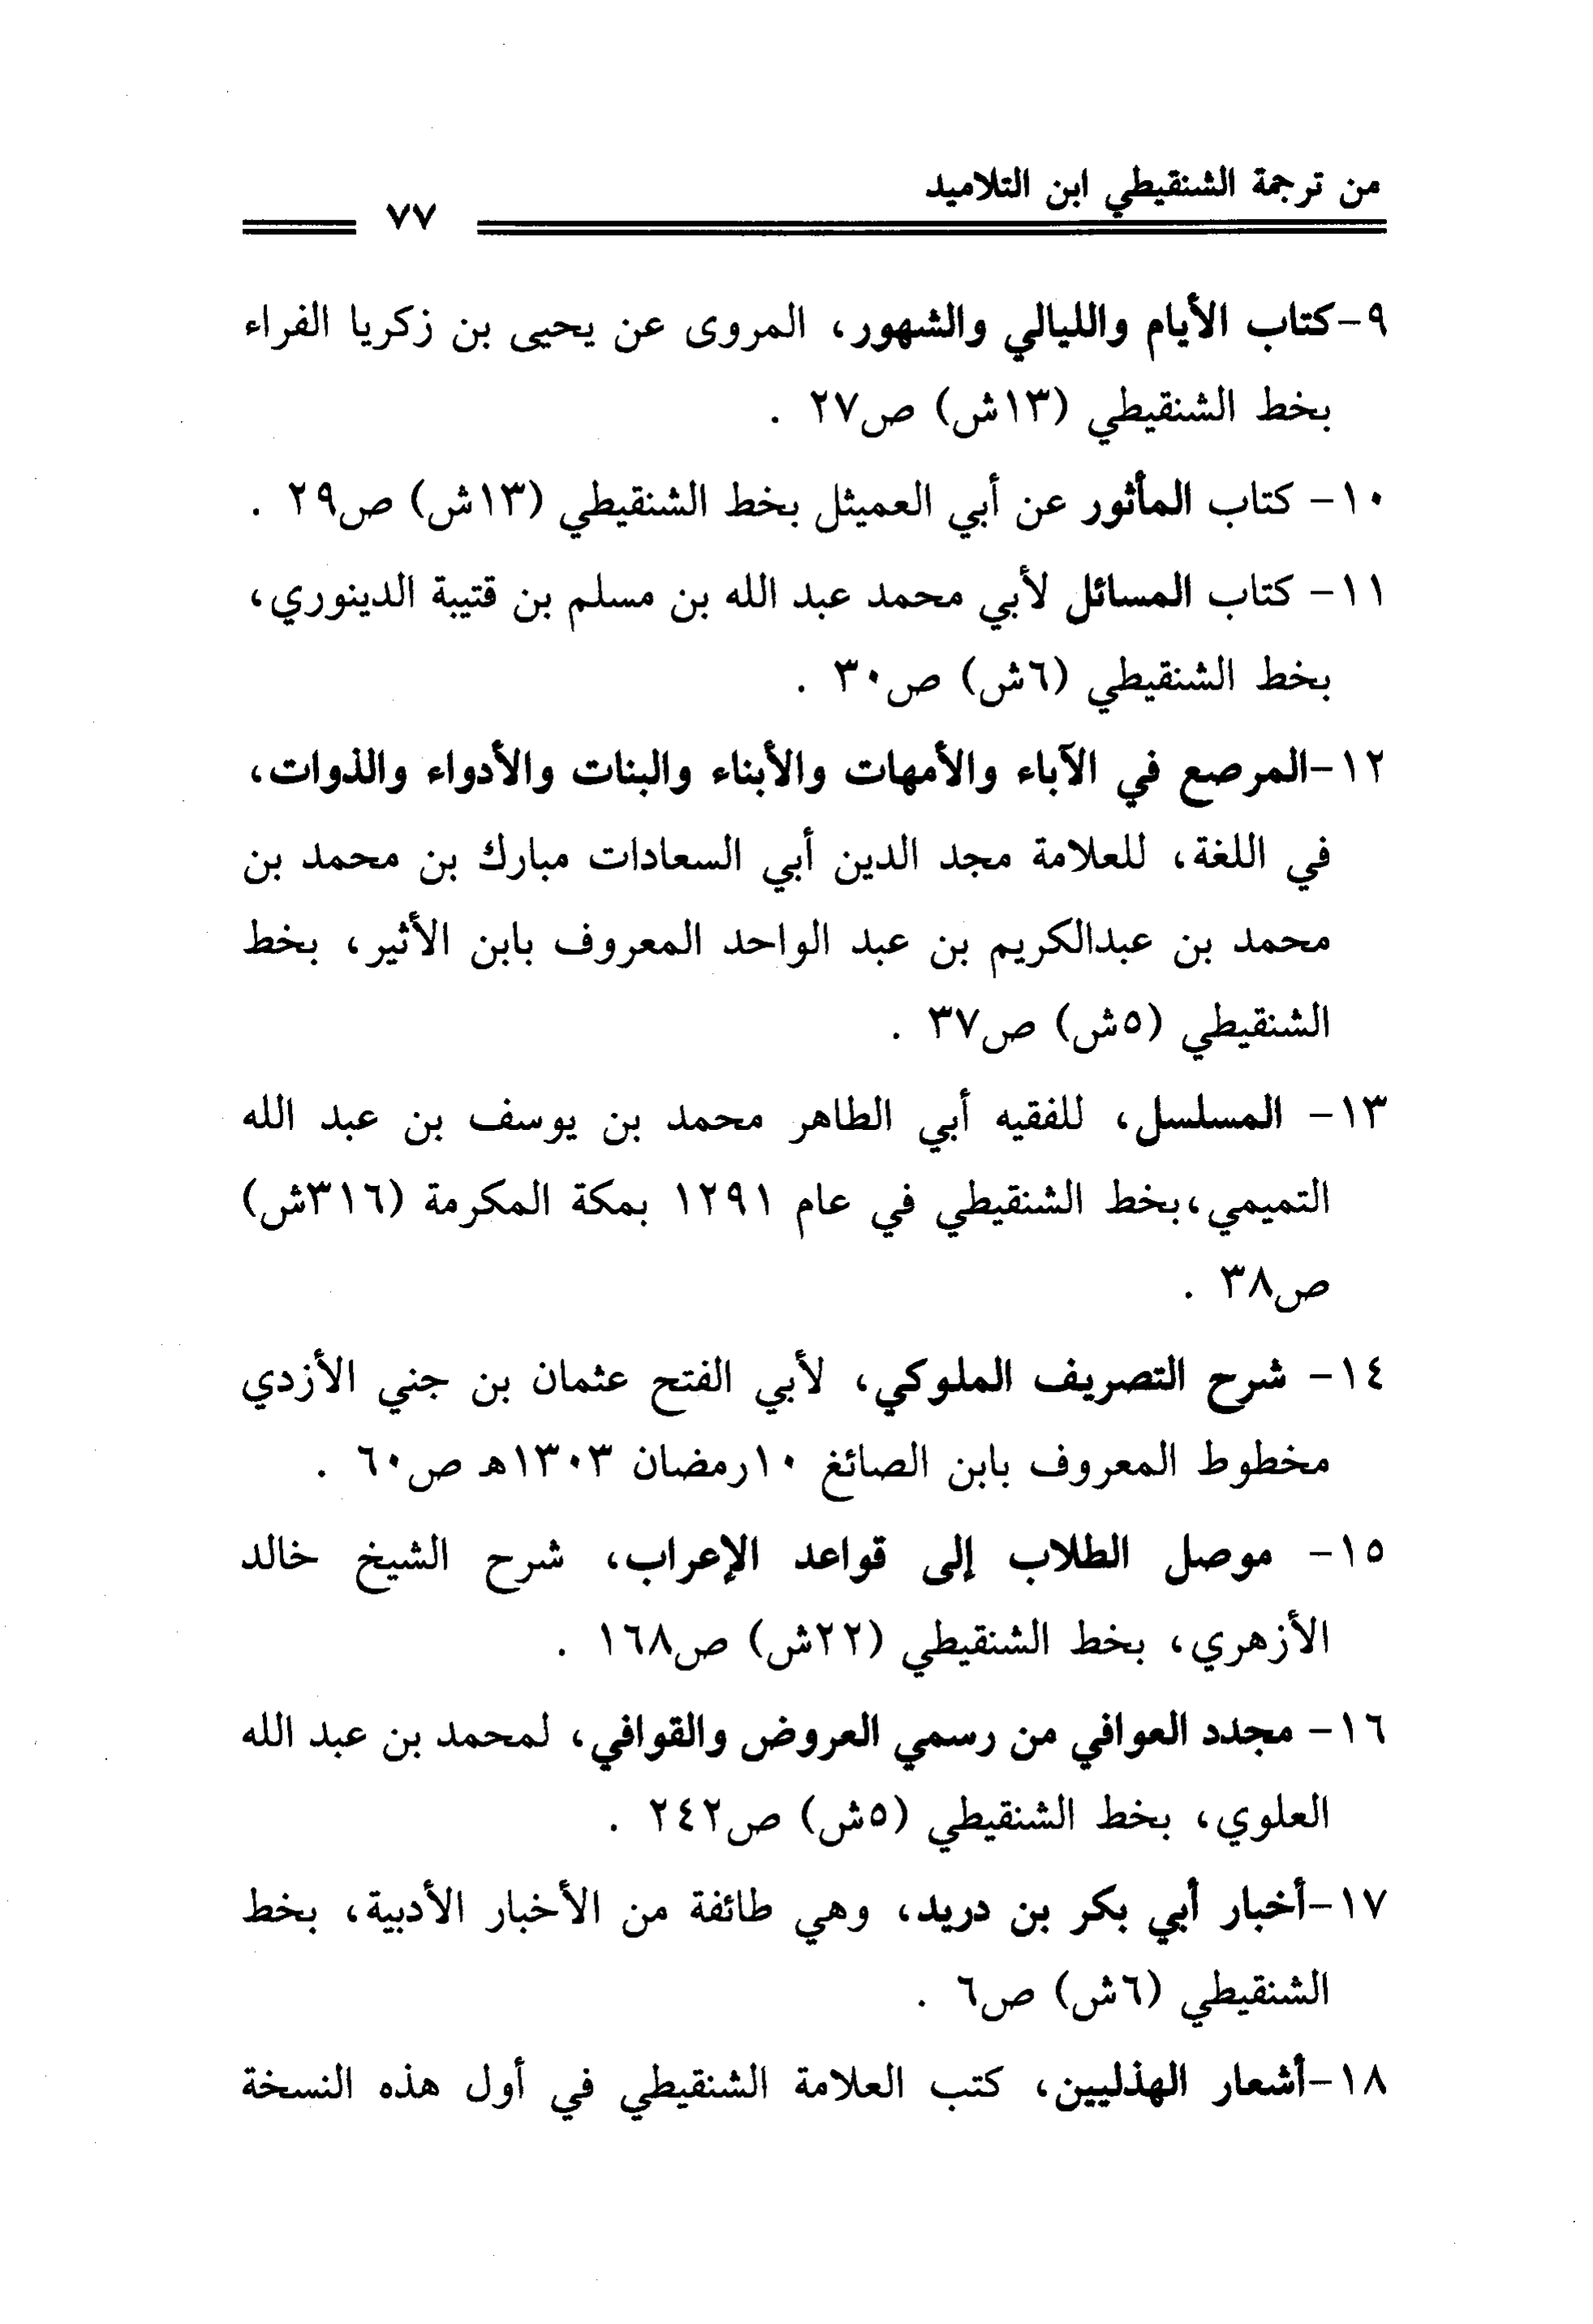 من ترجمة الشنقيطي ابن التلاميد
٧٧
٩-كتاب الأيام والليالي والشهور، المروى عن يحيى بن زكريا الفراء
بخط الشنقيطي (١٣ش) ص٢٧ .
١٠- كتاب المأثور عن أبي العميثل بخط الشنقيطي (١٣ش) ص٢٩ .
١١- كتاب المسائل لأبي محمد عبد الله بن مسلم بن قتيبة الدينوري،
بخط الشنقيطي (٦ش) ص٣٠ .
١٢-المرصع في الآباء والأمهات والأبناء والبنات والأدواء والذوات،
في اللغة، للعلامة مجد الدين أبي السعادات مبارك بن محمد بن
محمد بن عبدالكريم بن عبد الواحد المعروف بابن الأثير، بخط
الشنقيطي (٥ش) ص٣٧ .
١٣- المسلسل، للفقيه أبي الطاهر محمد بن يوسف بن عبد الله
التميمي،بخط الشنقيطي في عام ١٢٩١ بمكة المكرمة (٣١٦ش)
ص٣٨ .
١٤- شرح التصريف الملوكي، لأبي الفتح عثمان بن جني الأزدي
مخطوط المعروف بابن الصائغ ١٠رمضان ١٣٠٣هـ ص٦٠ .
١٥- موصل الطلاب إلى قواعد الإعراب، شرح الشيخ خالد
الأزهري، بخط الشنقيطي (٢٢ش) ص١٦٨ .
١٦- مجدد العوافي من رسمي العروض والقوافي، لمحمد بن عبد الله
العلوي، بخط الشنقيطي (٥ش) ص٢٤٢ .
١٧-أخبار أبي بكر بن دريد، وهي طائفة من الأخبار الأدبية، بخط
الشنقيطي (٦ش) ص٦ .
١٨-أشعار الهذليين، كتب العلامة الشنقيطي في أول هذه النسخة